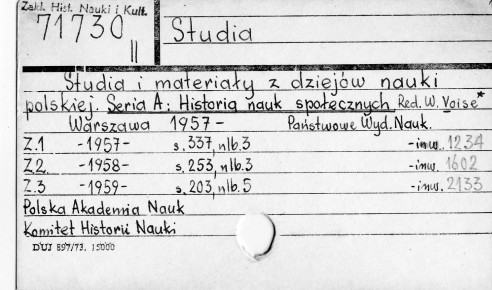 Zakł. Hist. Nauki i Kult.
71730
II
Studia
Studia i materiały z dziejów nauki
polskiej. Seria A: Historia nauk społecznych Red. W. Voisé*
Warszawa 1957- Państwowe Wyd. Nauk.
Z.1 -1957- s. 337, nlb. 3 -inw. 1234
Z.2. -1958- s. 253, nlb. 3 -inw. 1602
Z.3 -1959- s. 203, nlb. 5 -inw. 2133
Polska Akademia Nauk
Komitet Historii Nauki
DUJ 897/73. 15000